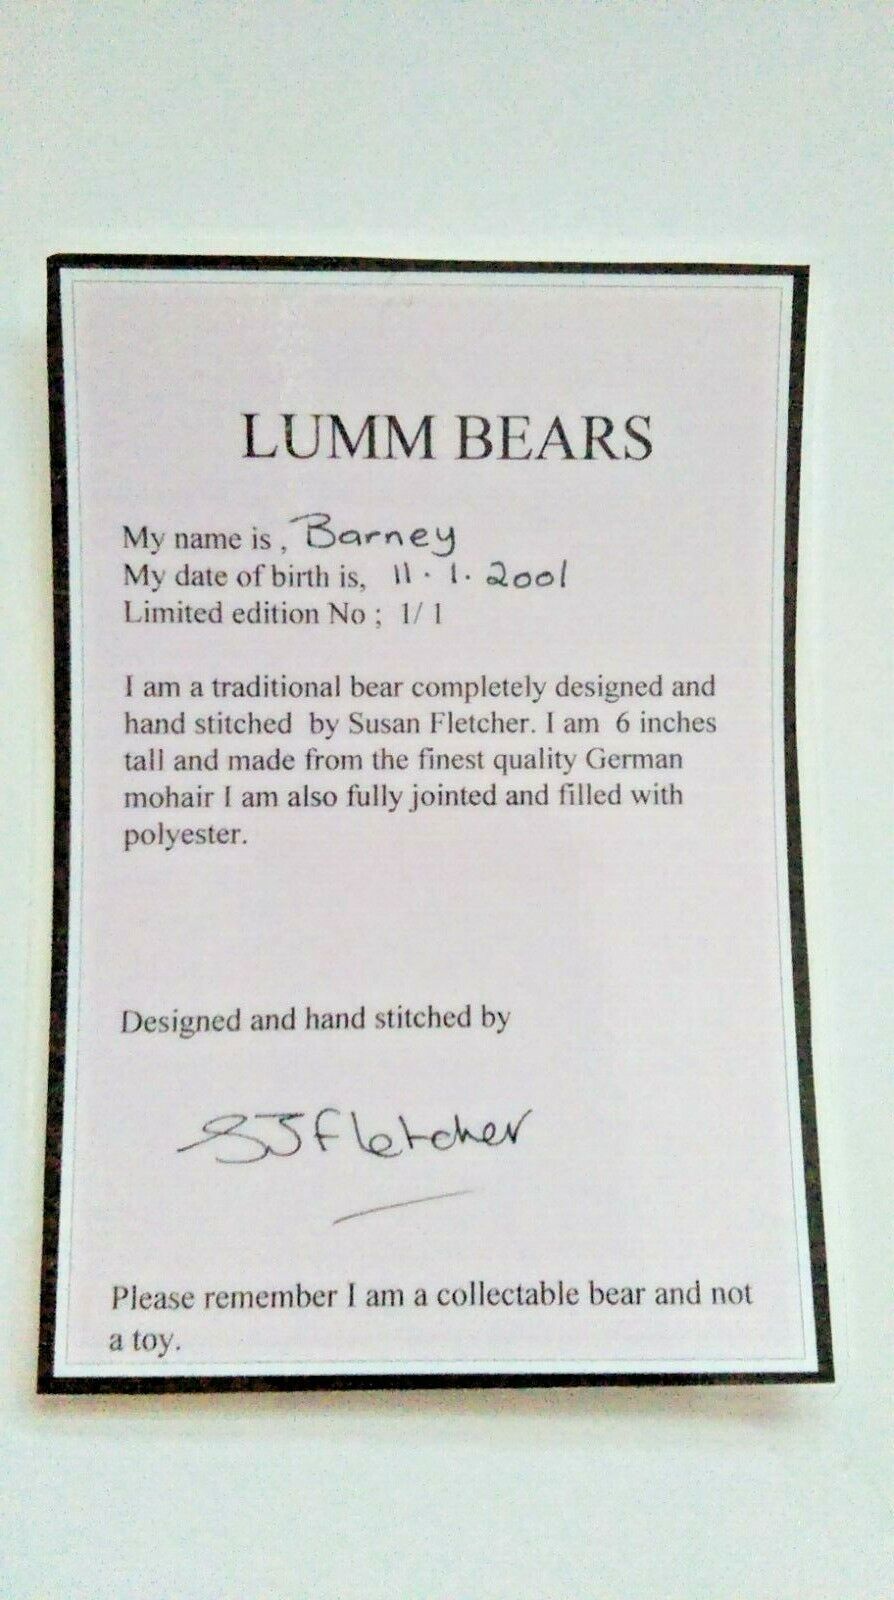 LUMM BEARS
My name is , Barney
My date of birth is, 11 . 1. 2001
Limited edition No ; 1/ 1
I am a traditional bear completely designed and
hand stitched by Susan Fletcher. I am 6 inches
tall and made from the finest quality German
mohair I am also fully jointed and filled with
polyester.
Designed and hand stitched by
SJFletcher
Please remember I am a collectable bear and not
a toy.